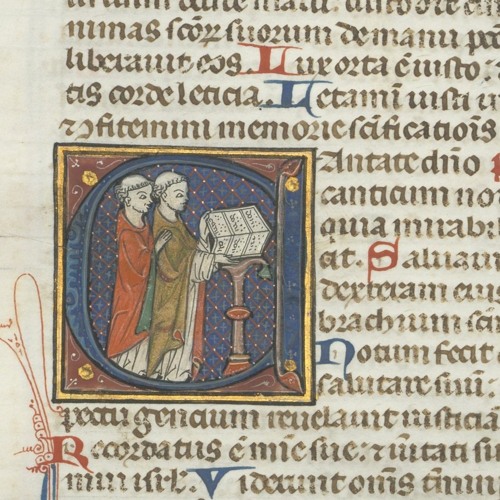 nimas scōꝝ suorum de manu pec
liberauit eos. Lux orta ē iusto:
tis corde leticia. Letamī iusti ī
⁊ ꝯfitemini memorie scīficatiōis
Cantate dn̄o
canticum no
quia mirabi
cit. Saluaui
dexteram eius
brachium scī
Notum fecit
salutare suū:
spectu gencium reuelauit iusticiā
Recordatus ē mīe sue: ⁊ ūitati su
mui isrł. Viderunt om̄s tmini